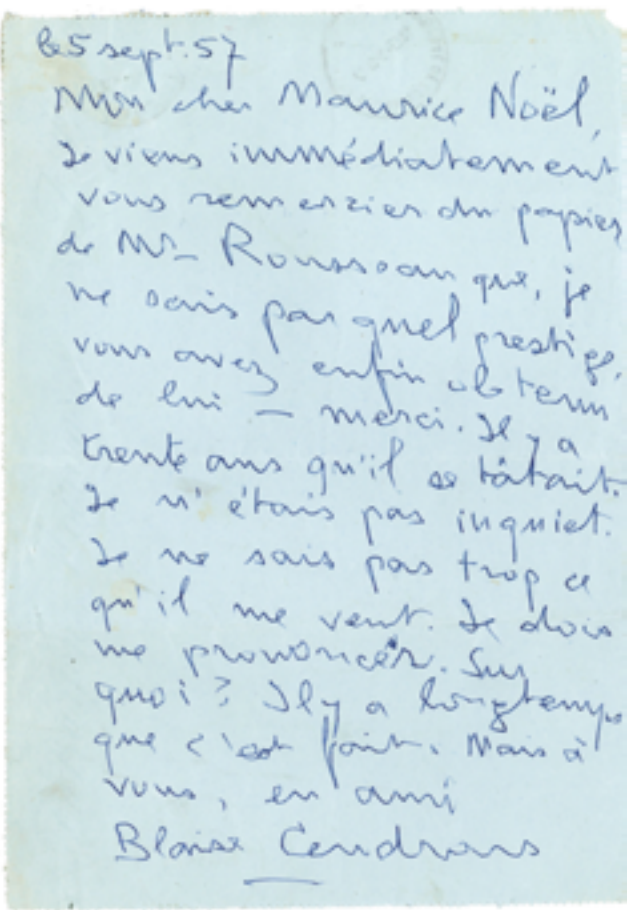 le 5 sept. 57
Mon cher Maurice Noël,
Je viens immédiatement
vous remercier du papier
de Mr Rousseau que, je
ne sais par quel prestige,
vous avez enfin obtenu
de lui — merci. Il y a
trente ans qu'il se tâtait.
Je n'étais pas inquiet.
Je ne sais pas trop ce
qu'il me veut. Je dois
me prononcer. Sur
quoi ? Il y a longtemps
que c'est fait. Mais à
vous, en ami
Blaise Cendrars